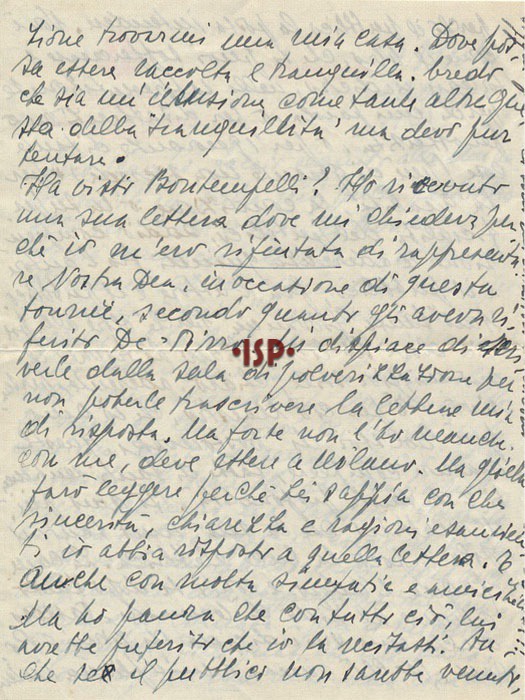 zione trovarmi una mia casa. Dove pos-
sa essere raccolta e tranquilla. Credo
che sia un'illusione come tante altre que
sta della "tranquillità" ma devo pur
tentare.
Ha visto Bontempelli? Ho ricevuto
una sua lettera dove mi chiedeva per
chè io m'ero rifiutata di rappresenta
re Nostra Dea, in occasione di questa
tournée, secondo quanto gli aveva ri-
ferito De-Pirro. Mi dispiace di scri
verle dalla sala di polverizzazione per
non poterle trascrivere la lettera mia
di risposta. Ma forse non l'ho neanche
con me, deve essere a Milano. Ma gliela
farò leggere perchè Lei sappia con che
sincerità, chiarezza e ragioni esaurien
ti io abbia risposto a quella lettera. E
anche con molta simpatia e amicizia.
Ma ho paura che con tutto ciò, lui
avrebbe preferito che io la recitassi. An
che se il pubblico non sarebbe venuto
·ISP·